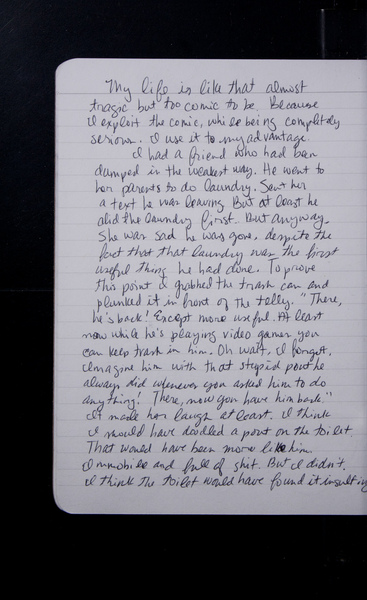 My life is like that almost
tragic but too comic to be. Because
I exploit the comic, while being completely
serious. I use it to my advantage.
I had a friend who had been
dumped in the weakest way. He went to
her parents to do laundry. Sent her
a text he was leaving. But at least he
did the laundry first. But anyway.
She was sad he was gone, despite the
fact that that laundry was the first
useful thing he had done. To prove
this point I grabbed the trash can and
plunked it in front of the telly. "There,
he's back! Except more useful. At least
now while he's playing video games you
can keep trash in him. Oh wait, I forgot,
imagine him with that stupid pout he
always did whenever you asked him to do
anything! There, now you have him back."
It made her laugh at least. I think
I should have doodled a pout on the toilet.
That would have been more like him.
Immobile and full of shit. But I didn't.
I think the toilet would have found it insulting